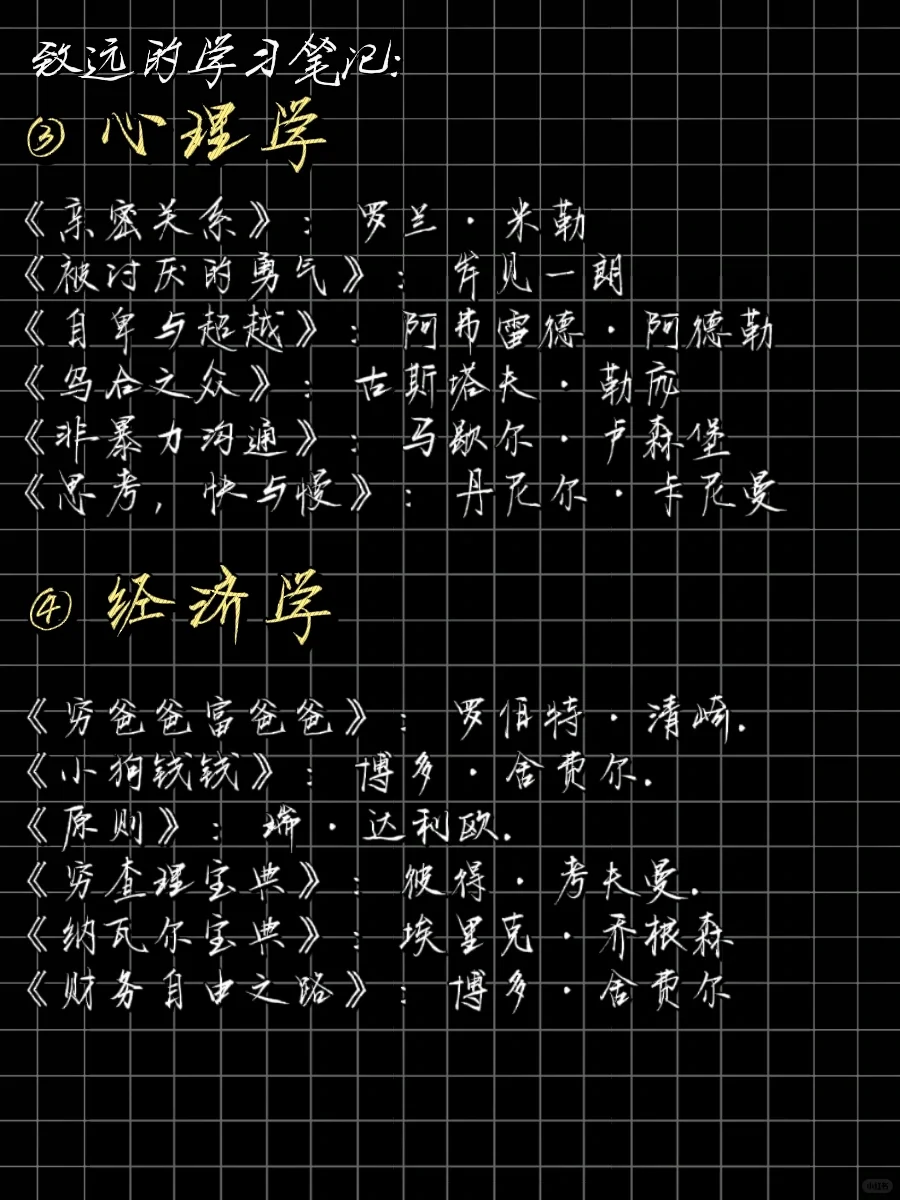 致远的学习笔记:
③ 心理学
《亲密关系》: 罗兰·米勒
《被讨厌的勇气》: 岸见一朗
《自卑与超越》: 阿弗雷德·阿德勒
《乌合之众》: 古斯塔夫·勒庞
《非暴力沟通》: 马歇尔·卢森堡
《思考, 快与慢》: 丹尼尔·卡尼曼
④ 经济学
《穷爸爸富爸爸》: 罗伯特·清崎.
《小狗钱钱》: 博多·舍费尔.
《原则》: 瑞·达利欧.
《穷查理宝典》: 彼得·考夫曼.
《纳瓦尔宝典》: 埃里克·乔根森
《财务自由之路》: 博多·舍费尔
小红书